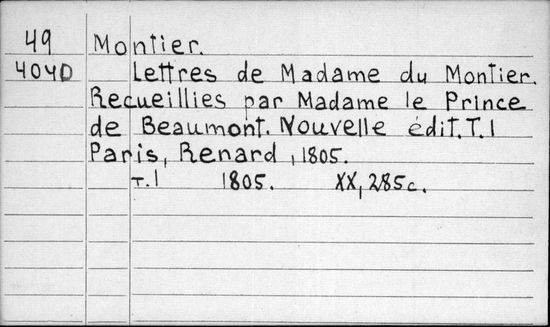 49 Montier.
404D Lettres de Madame du Montier.
Recueillies par Madame le Prince
de Beaumont. Nouvelle édit. T. I
Paris, Renard, 1805.
T. I 1805. XX, 285c.